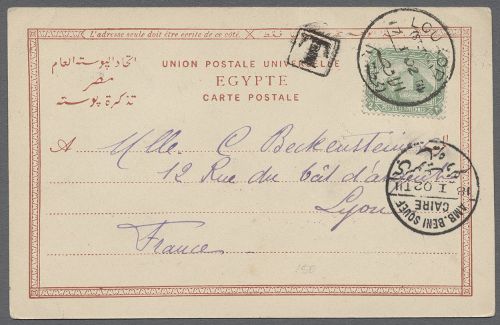 L'adresse seule doit être écrite de ce côté.
اتحاد البوسته العام
مصر
تذكرة بوسته
UNION POSTALE UNIVERSELLE
EGYPTE
CARTE POSTALE
T
LOUXOR
17 I 02
A Mlle. C. Beckensteiner
12 Rue du bât d'argent
Lyon
France
AMB. BENI SOUEF
CAIRE
18 I 02 T.11
150